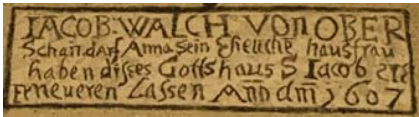 IACOB·WALCH VON OBER
Schan darf Anna sein Eheliche hausfrau
haben disses Gottshaus S Iacob
Erneueren Lassen Año dm̄ 1607